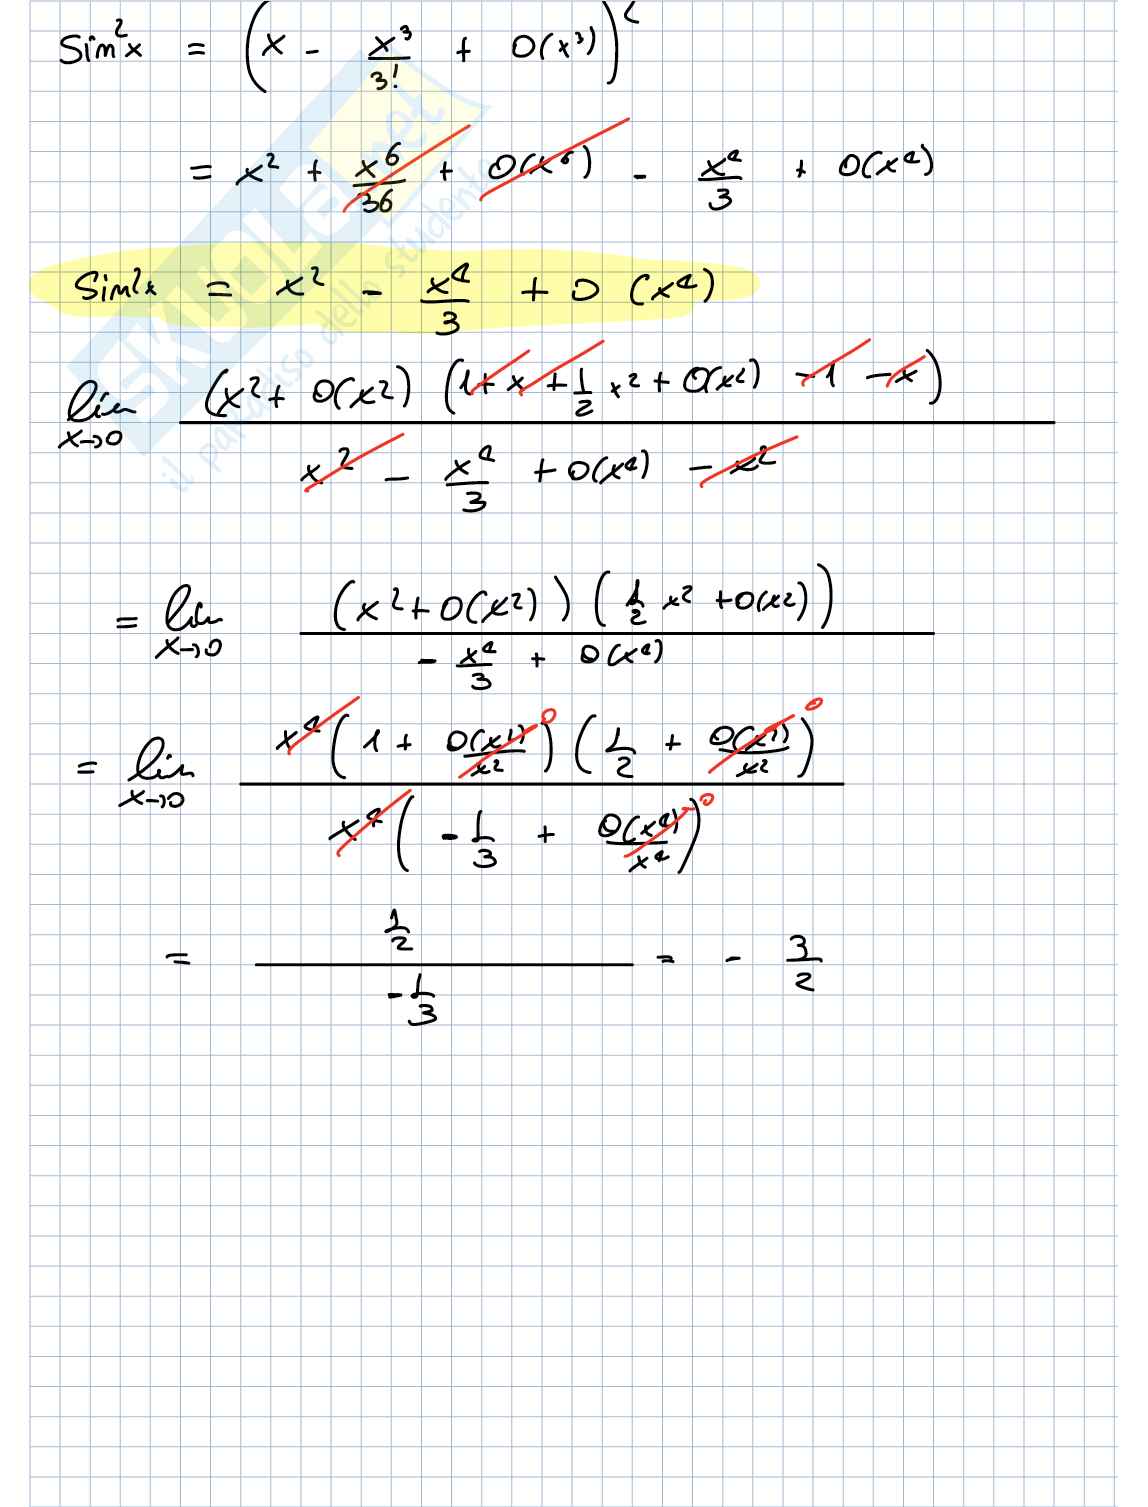 Sin²x = (x - x³/3! + o(x³))²
= x² + x⁶/36 + o(x⁶) - x⁴/3 + o(x⁴)
Sin²x = x² - x⁴/3 + o(x⁴)
lim x→0 (x² + o(x²)) (1 + x + 1/2 x² + o(x²) - 1 - x) / x² - x⁴/3 + o(x⁴) - x²
= lim x→0 (x² + o(x²)) (1/2 x² + o(x²)) / - x⁴/3 + o(x⁴)
= lim x→0 x⁴ (1 + o(x²)/x² 0) (1/2 + o(x²)/x² 0) / x⁴ (-1/3 + o(x⁴)/x⁴ →0)
= 1/2 / -1/3 = - 3/2
SKUOLA.net
il paradiso dello studente